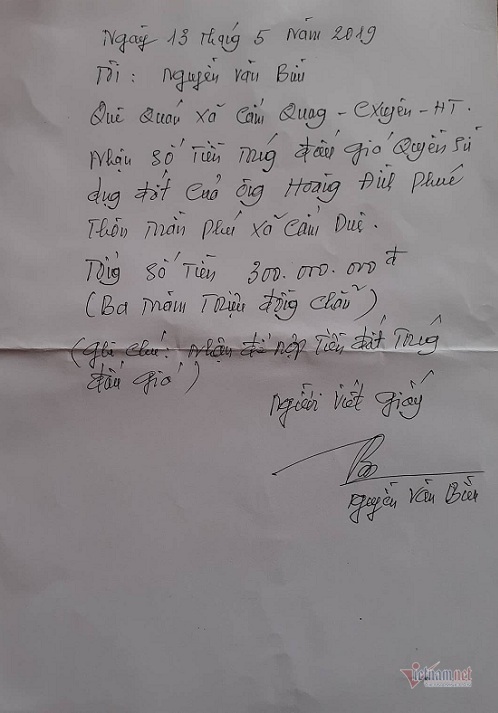 Ngày 13 tháng 5 Năm 2019
Tôi : Nguyễn Văn Bửu
Quê Quán Xã Cẩm Quang - CXuyên - HT.
Nhận Số Tiền Trúng đấu giá Quyền Sử
dụng đất Của ông Hoàng Đình Phué
Thôn Trần Phú Xã Cẩm Duệ.
Tổng Số Tiền 300.000.000đ
(Ba Trăm Triệu đồng chẵn)
(Ghi chú: Nhận để nộp Tiền đất Trúng
đấu giá)
Người Viết Giấy
Nguyễn Văn Bửu
vietnamnet